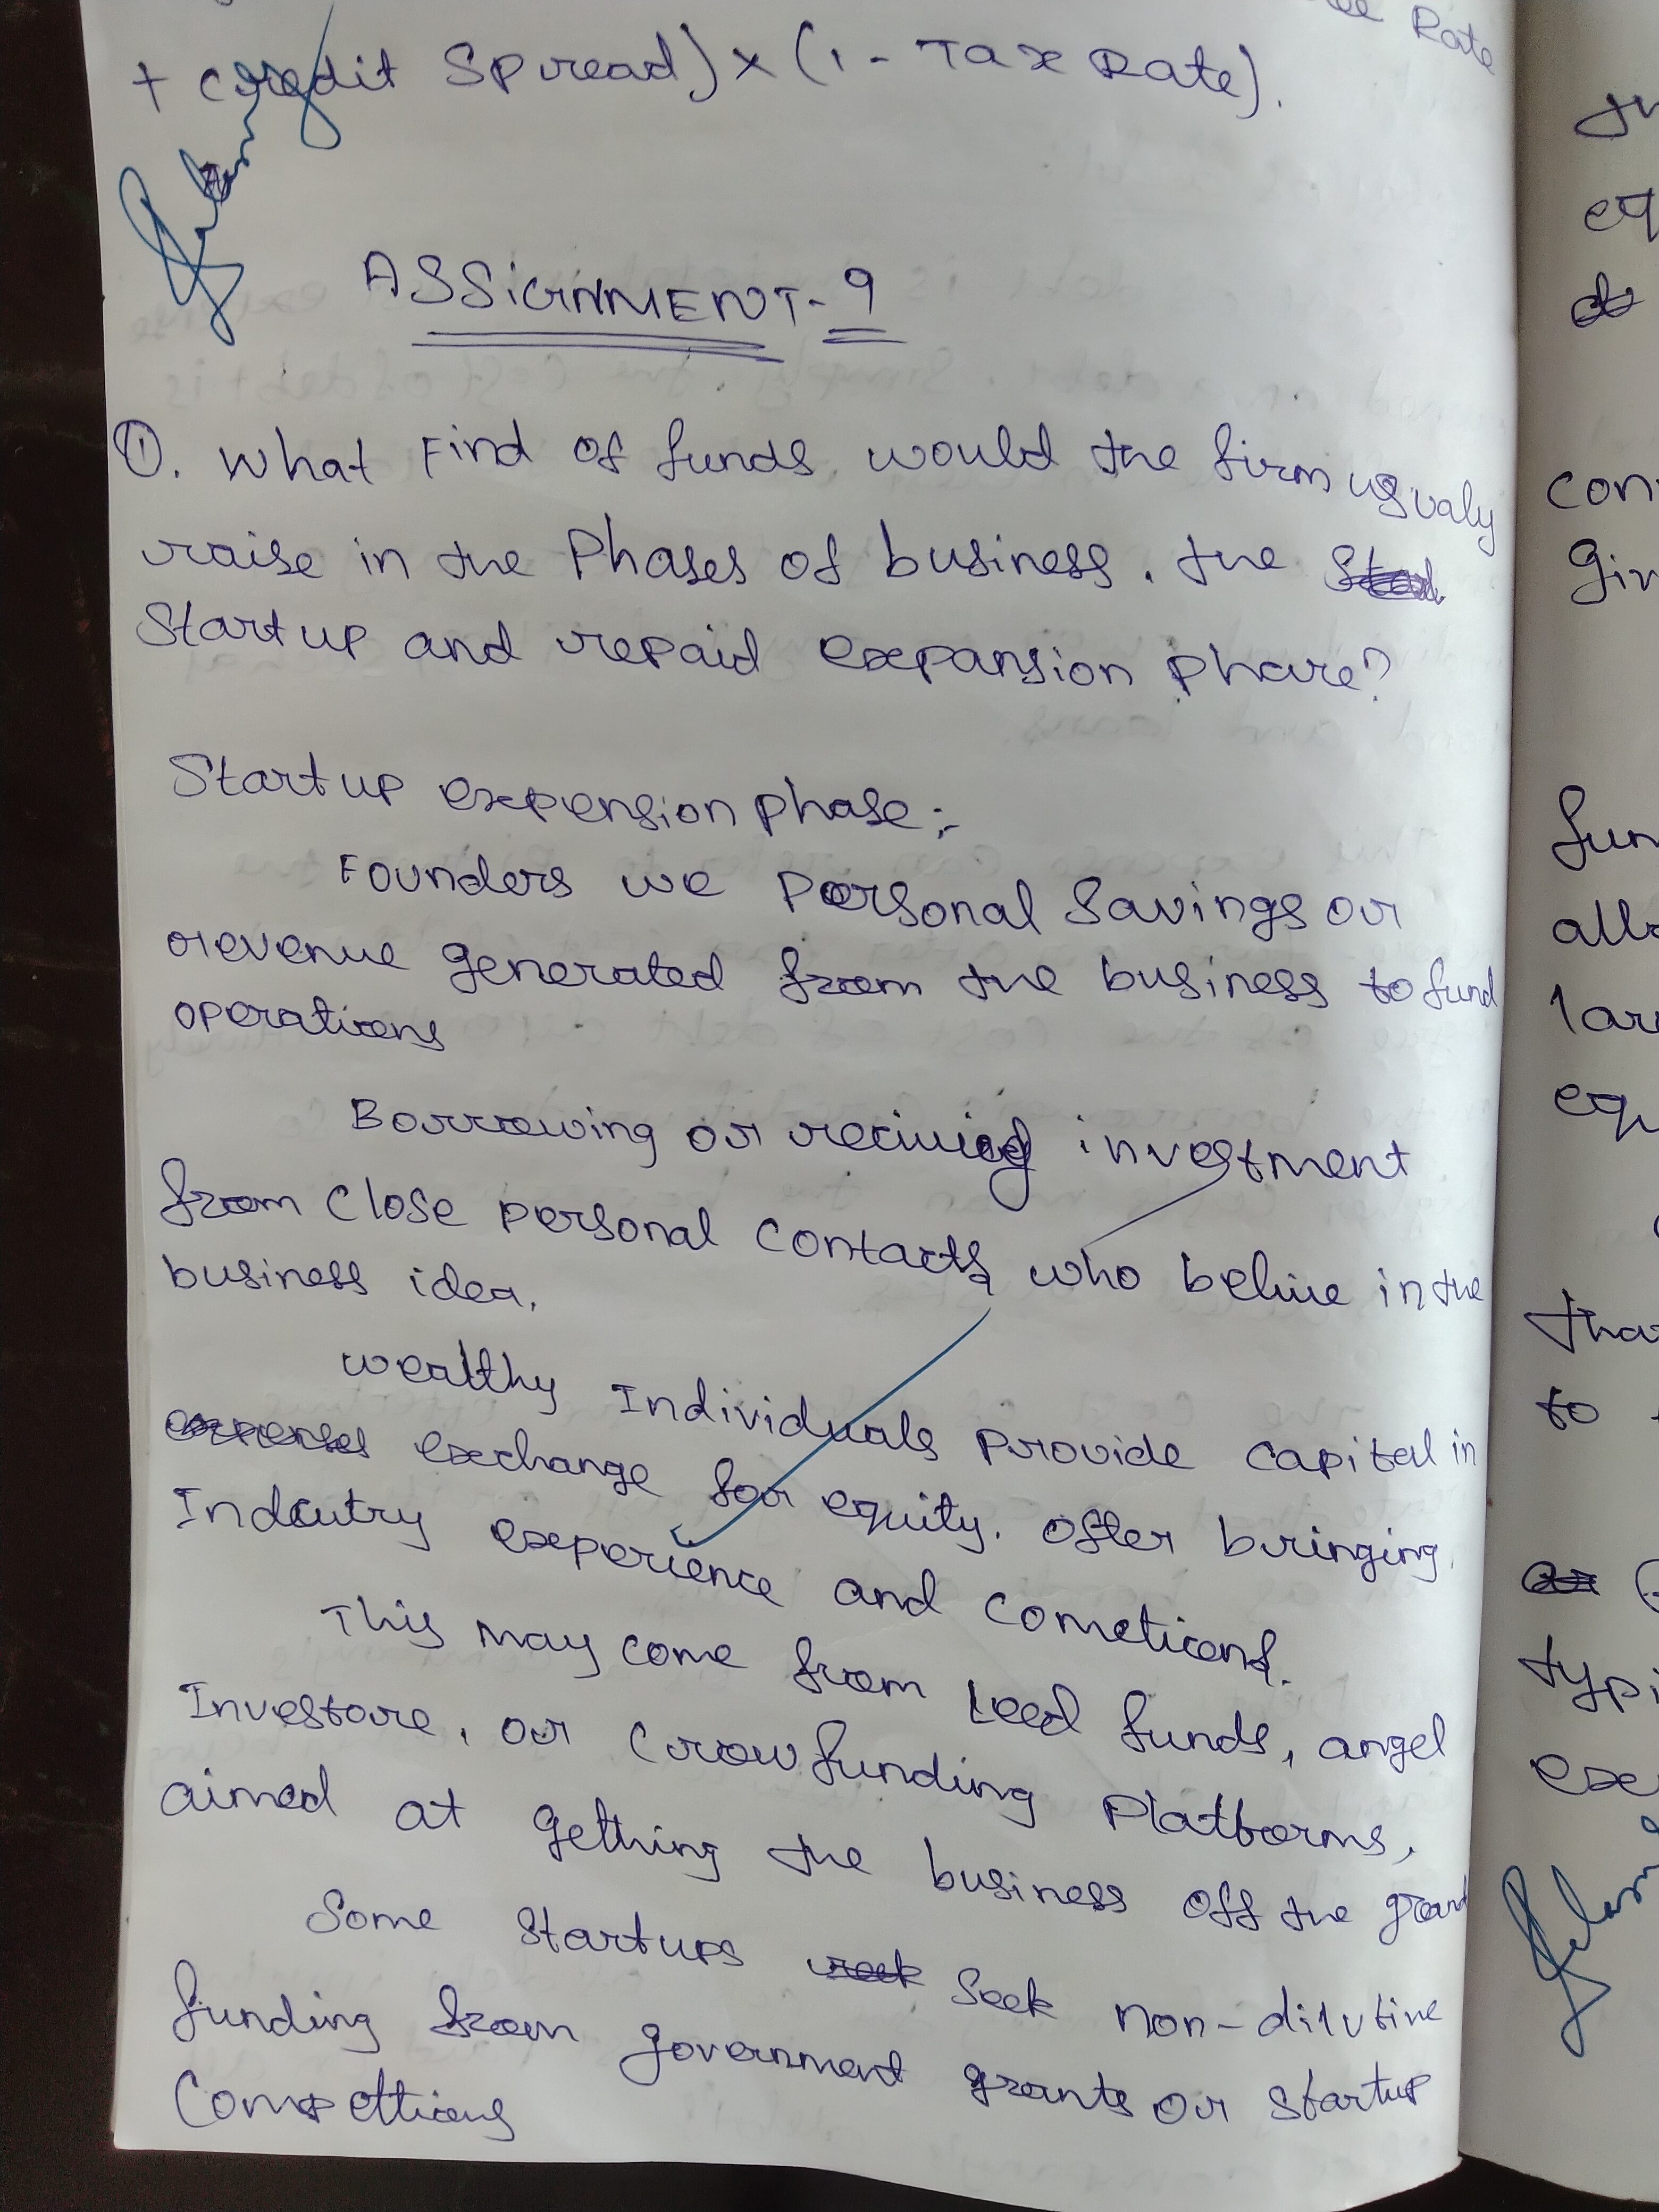 ee Rate
+ credit Spread) x (1 - Tax Rate).
ASSIGNMENT-9
①. What Find of funds would the firm usualy
raise in the Phases of business. the
Startup and repaid expansion phare?
Startup expension phase:-
Founders we Personal Savings or
revenue generated from the business to fund
operations
Borrowing or reciuing investment
from close personal contacts who beliue in the
business idea.
wealthy Individuals provide capital in
exchange for equity. Ofter bringing
Indcutry experience and cometions.
This may come from seed funds, angel
Investore, or Crowfunding Platforms,
aimed at gething the business off the grand
Some startups Seek non-dilutive
funding from government grants or startup
Compettions
eq
con
Gin
fun
all
lar
equ
tha
to
typi
exe